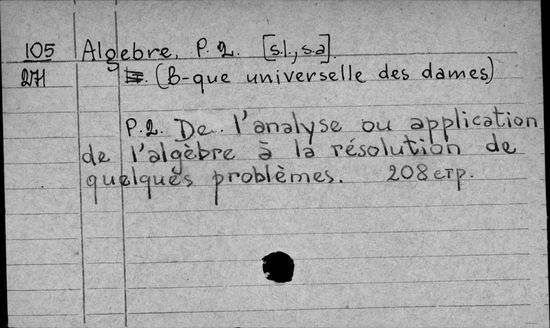 105 Algebre, P. 2. [s.l., s.a].
271 (B-que universelle des dames)
P.2. De l'analyse ou application
de l'algèbre à la résolution de
quelques problèmes. 208 стр.